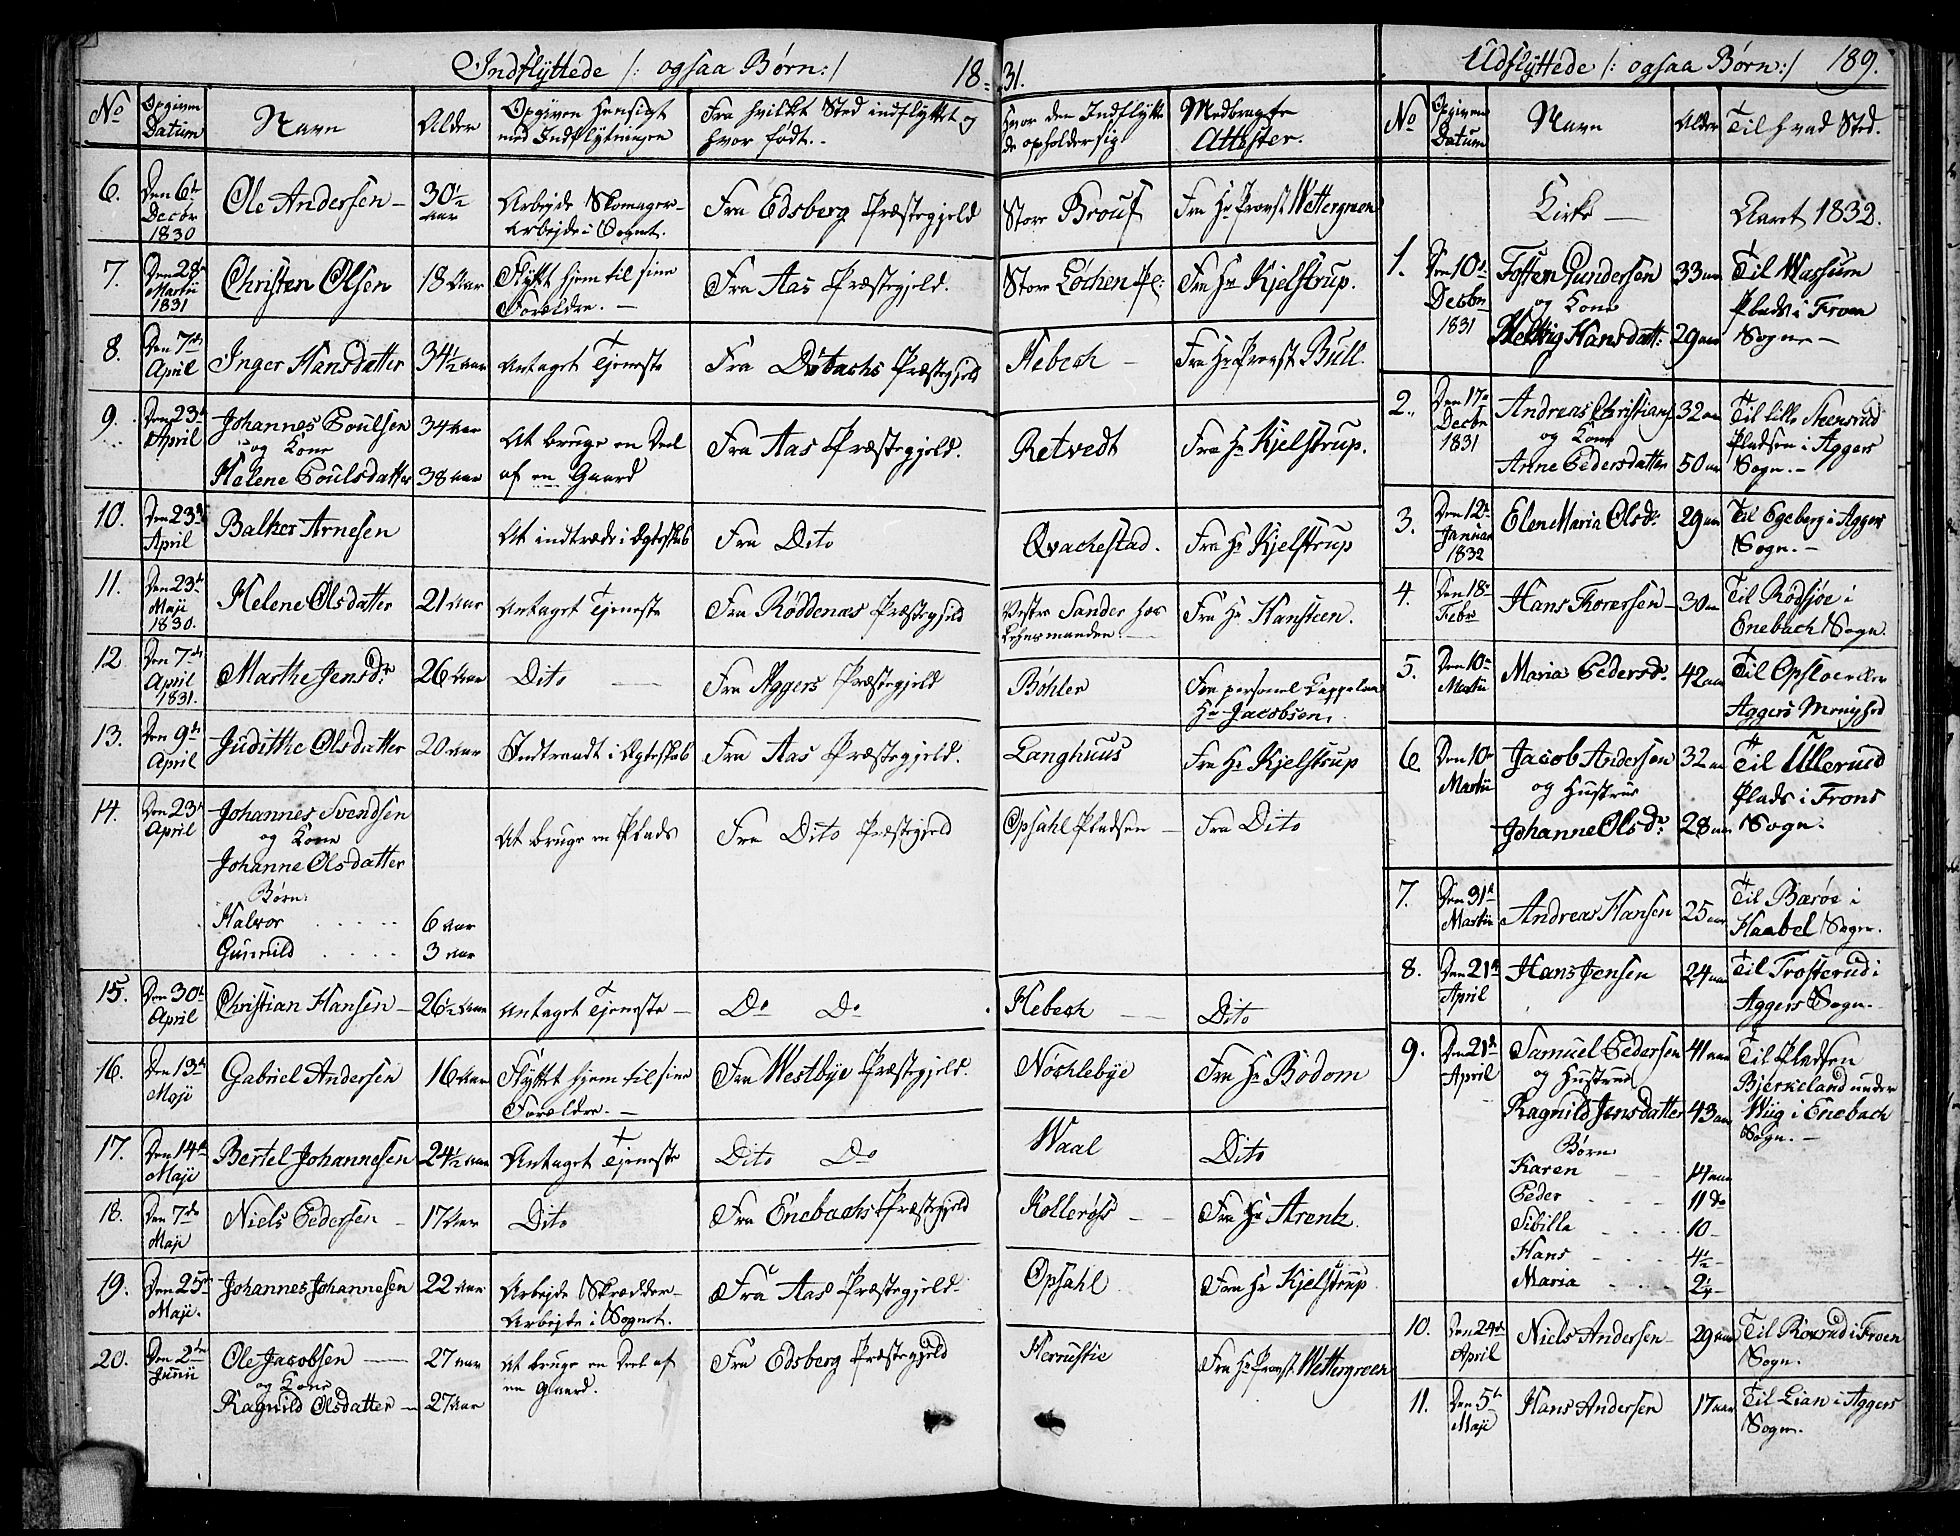 Indflyttede /: ogsaa Børn :/ 18-31.
No
Opgiven Datum
Navn
Alder
Opgiven Hensigt med Indflytningen
Fra hvilket Sted indflyttet og hvor født.
Hvor den Indflyttede opholder sig
Medbragte Attester.
6. Den 6te Decbr 1830 Ole Andersen 30½ aar Arbejde Skomager-Arbejde i Sognet. Fra Edsberg Præstegjeld Store Brouf Fra Hr Provst Wettergreen
7. Den 28de Martii 1831 Christen Olsen 18 Aar Flytt hjem til sine Forældre. Fra Aas Præstegjeld. Store Løchen Pl: Fra Hr Kjelstrup.
8. Den 7de April Inger Hansdatter 34½ aar Antaget Tjeneste Fra Præstegjeld Hebech Fra Hr Provst Bull
9. Den 23de April Johannes Poulsen 34 aar
og Kone
Helene Poulsdatter 38 aar At bruge en Deel af en Gaard Fra Aas Præstegjeld. Retvedt Fra Hr Kjelstrup.
10. Den 23de April Balker Arnesen At indtræde i Ægteskab Fra Dito Qvachestad. Fra Hr Kjelstrup
11. Den 23de Maji 1830. Helene Olsdatter 21 aar Antaget Tjeneste Fra Røddenæs Præstegjeld Vestre Sander hos Lehnsmanden. Fra Hr Hansteen.
12 Den 7de April 1831. Marthe Jensdr 26 Aar Dito Fra Aggers Præstegjeld Bøhler Fra personel Cappelan Hr Jacobsen.
13. Den 9de April Judithe Olsdatter 20 aar Indtraadt i Ægteskab Fra Aas Præstegjeld. Langhuus Fra Hr Kjelstrup
14. Den 23de April Johannes Svendsen
og Kone
Johanne Olsdatter
Børn:
Halvor 6 aar
Gunnild 3 aar At bruge en Plads Fra Dito Præstegjeld Opsahl Pladsen Fra Dito
15. Den 30te April Christian Hansen 26½ Aar Antaget Tjeneste Do Do Hebech Dito
16. Den 13de Maji Gabriel Andersen 16 Aar Flyttet hjem til sine Forældre. Fra Westbye Præstegjeld. Nøchlebye Fra Hr Bødom
17. Den 14de Maji Bertel Johannesen 24½ aar Antaget Tjeneste Dito Do Waal Dito
18. Den 7de Maji Niels Pedersen 17 Aar Dito Fra Enebachs Præstegjeld Kollerøss Fra Hr Arentz
19. Den 25de Maji. Johannes Johannesen 22 Aar Arbejde Skrædder-Arbejde i Sognet. Fra Aas Præstegjeld. Opsahl Fra Hr Kjelstrup
20. Den 2den Junii Ole Jacobsen 27 aar
og Kone
Ragnild Olsdatter 27 aar At bruge en Deel af en Gaard. Fra Edsberg Præstegjeld Herrustie Fra Hr Provst Wettergreen
Udflyttede /: ogsaa Børn :/ 189.
No
Opgiven Datum
Navn
Alder
Til hvad Sted.
Kirke
Aaret 1832.
1. Den 10de Decbr 1831 Tosten Gundersen 33 aar
og Kone
Helvig Hansdatt: 29 aar Til Wassum Plads i Froen Sogn
2. Den 17de Decbr 1831 Andreas Christians 32 aar
og Kone
Anne Pedersdatter 50 aar Til lille Steensrud Pladsen i Aggers Sogn.
3. Den 12te Januar 1832 Elene Maria Olsdr 29 aar Til Egeberg i Aggers Sogn.
4. Den 18de Febr Hans Torersen 30 aar Til Rødsjøe i Enebach Sogn.
5. Den 10de Martii Maria Pedersdr 42 aar Til Opsloe eller Aggers Menighed
6 Den 10de Martii Jacob Andersen 32 aar
og Hustrue
Johanne Olsdr 28 aar Til Ullerud Plads i Frons Sogn.
7. Den 31te Martii Andreas Hansen 25 aar Til Barøe i Haabel Sogn.
8. Den 21de April Hans Jensen 24 aar Til Trosterud i Aggers Sogn.
9. Den 21de April Samuel Pedersen 41 aar
og Hustrue
Ragnild Jensdatter 43 aar Til Pladsen Bjerkeland under Wiig i Enebach Sogn.
Børn
Karen 14 aar
Peder 11 do
Sibille 10
Hans 4½
Maria 2¼
10. Den 24de April Niels Andersen 29 aar Til Roxrud i Froen Sogn.
11. Den 5te Maji Hans Andersen 17 aar Til Lian i Aggers Sogn.